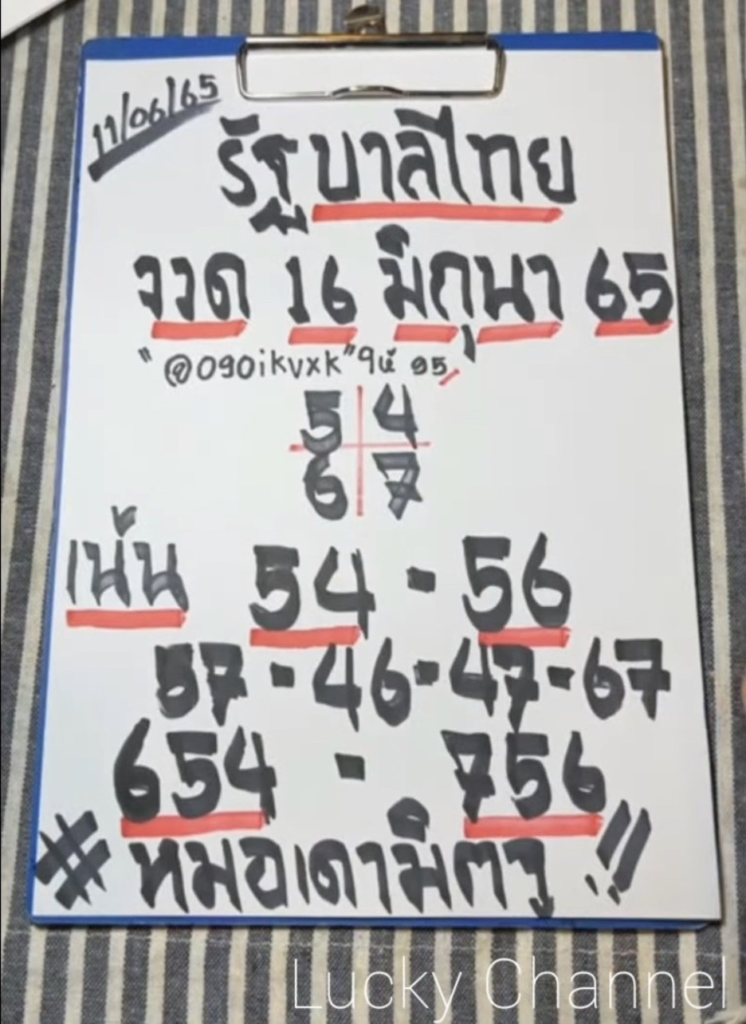 11/06/65
รัฐบาลไทย
งวด 16 มิถุนา 65
"@090ikvxk"
5 4
6 7
เน้น 54 - 56
57 - 46 - 47 - 67
654 - 756
#หมอเดามิตร !!
Lucky Channel